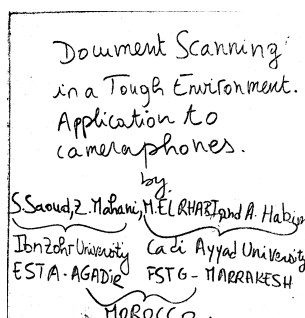 Document Scanning
in a Tough Environment.
Application to
cameraphones.
by
S.Saoud, Z.Mahani, M.ELRHABI, and A. Hakim
Ibn Zohr University Cadi Ayyad University
ESTA-AGADIR FSTG-MARRAKESH
MOROCCO